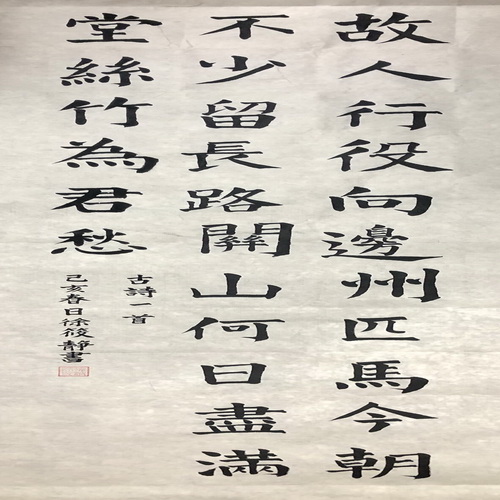 故人行役向邊州匹馬今朝
不少留長路關山何日盡滿
堂絲竹為君愁
古詩一首
己亥春日徐筱靜書